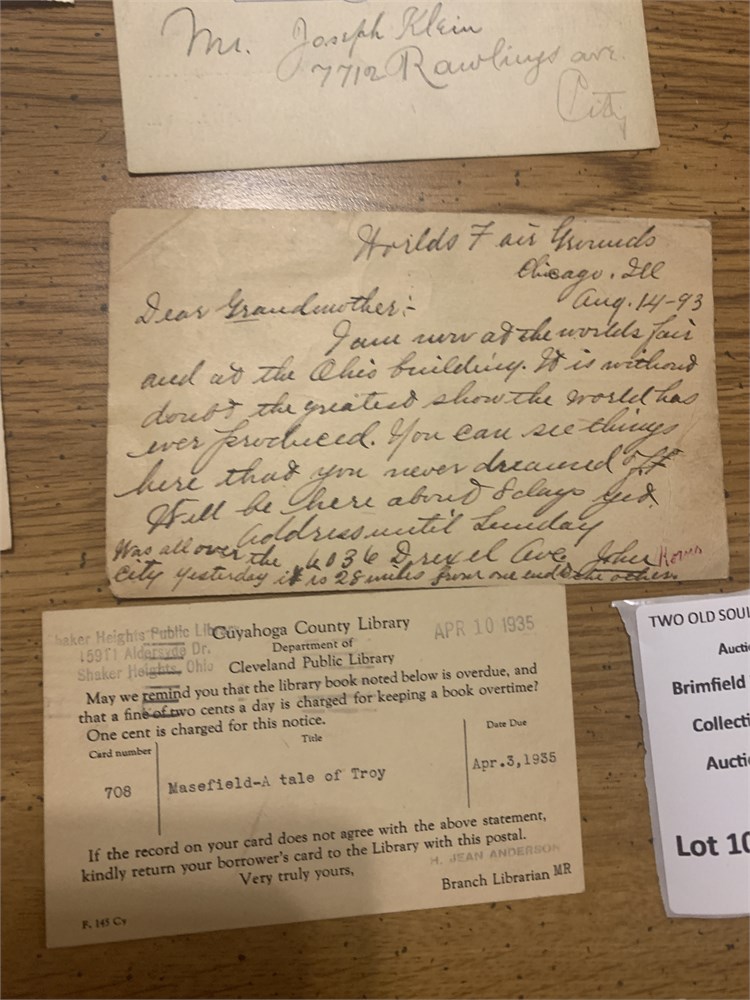 Mr. Joseph Klein
7712 Rawlings ave.
City
Worlds Fair Grounds
Chicago, Ill
Aug. 14-93
Dear Grandmother:-
I am now at the worlds fair
and at the Ohio building. It is without
doubt the greatest show the world has
ever produced. You can see things
here that you never dreamed of. I
Will be here about 8 days yet.
Address until Sunday
6036 Drexel Ave. John
Was all over the
City yesterday it is 28 miles from one end to the other.
Shaker Heights Public
15911 Aldersyde Dr.
Shaker Heights, Ohio
Cuyahoga County Library
Department of
Cleveland Public Library
APR 10 1935
May we remind you that the library book noted below is overdue, and
that a fine of two cents a day is charged for keeping a book overtime?
One cent is charged for this notice.
Card number
Title
Date Due
708
Masefield-A tale of Troy
Apr.3,1935
If the record on your card does not agree with the above statement,
kindly return your borrower's card to the Library with this postal.
Very truly yours,
H. JEAN ANDERSON
Branch Librarian MR
F. 145 Cy
TWO OLD SOU
Aucti
Brimfield
Collecti
Aucti
Lot 10